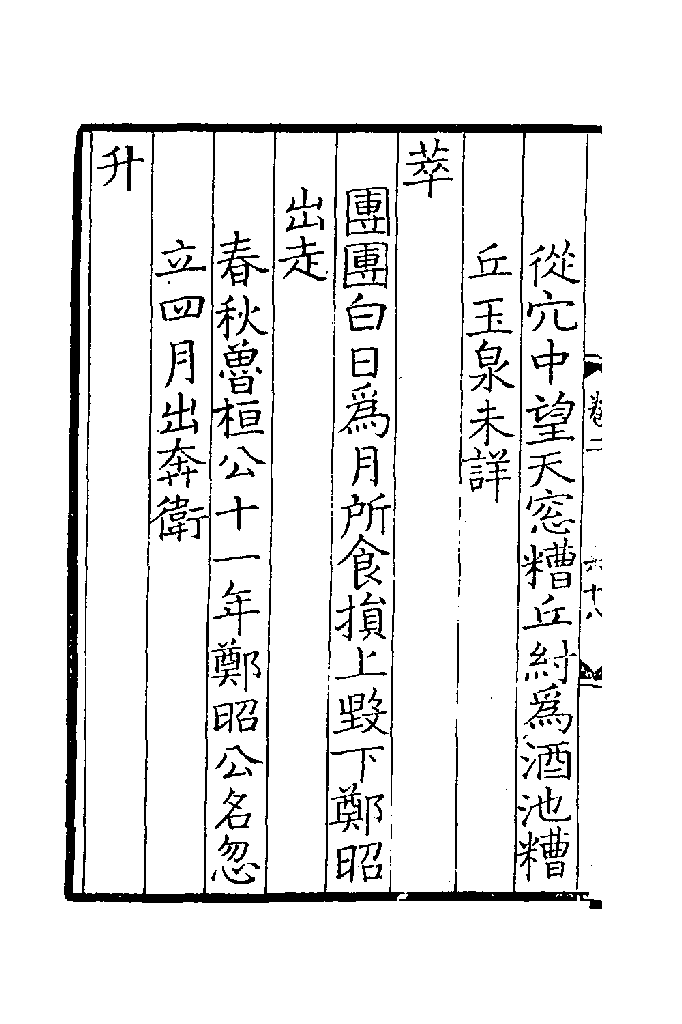 從穴中望天窓糟丘紂爲酒池糟
丘玉泉未詳
萃
團團白日爲月所食損上毀下鄭昭
出走
春秋魯桓公十一年鄭昭公名忽
立四月出奔衛
升
卷二
六十八